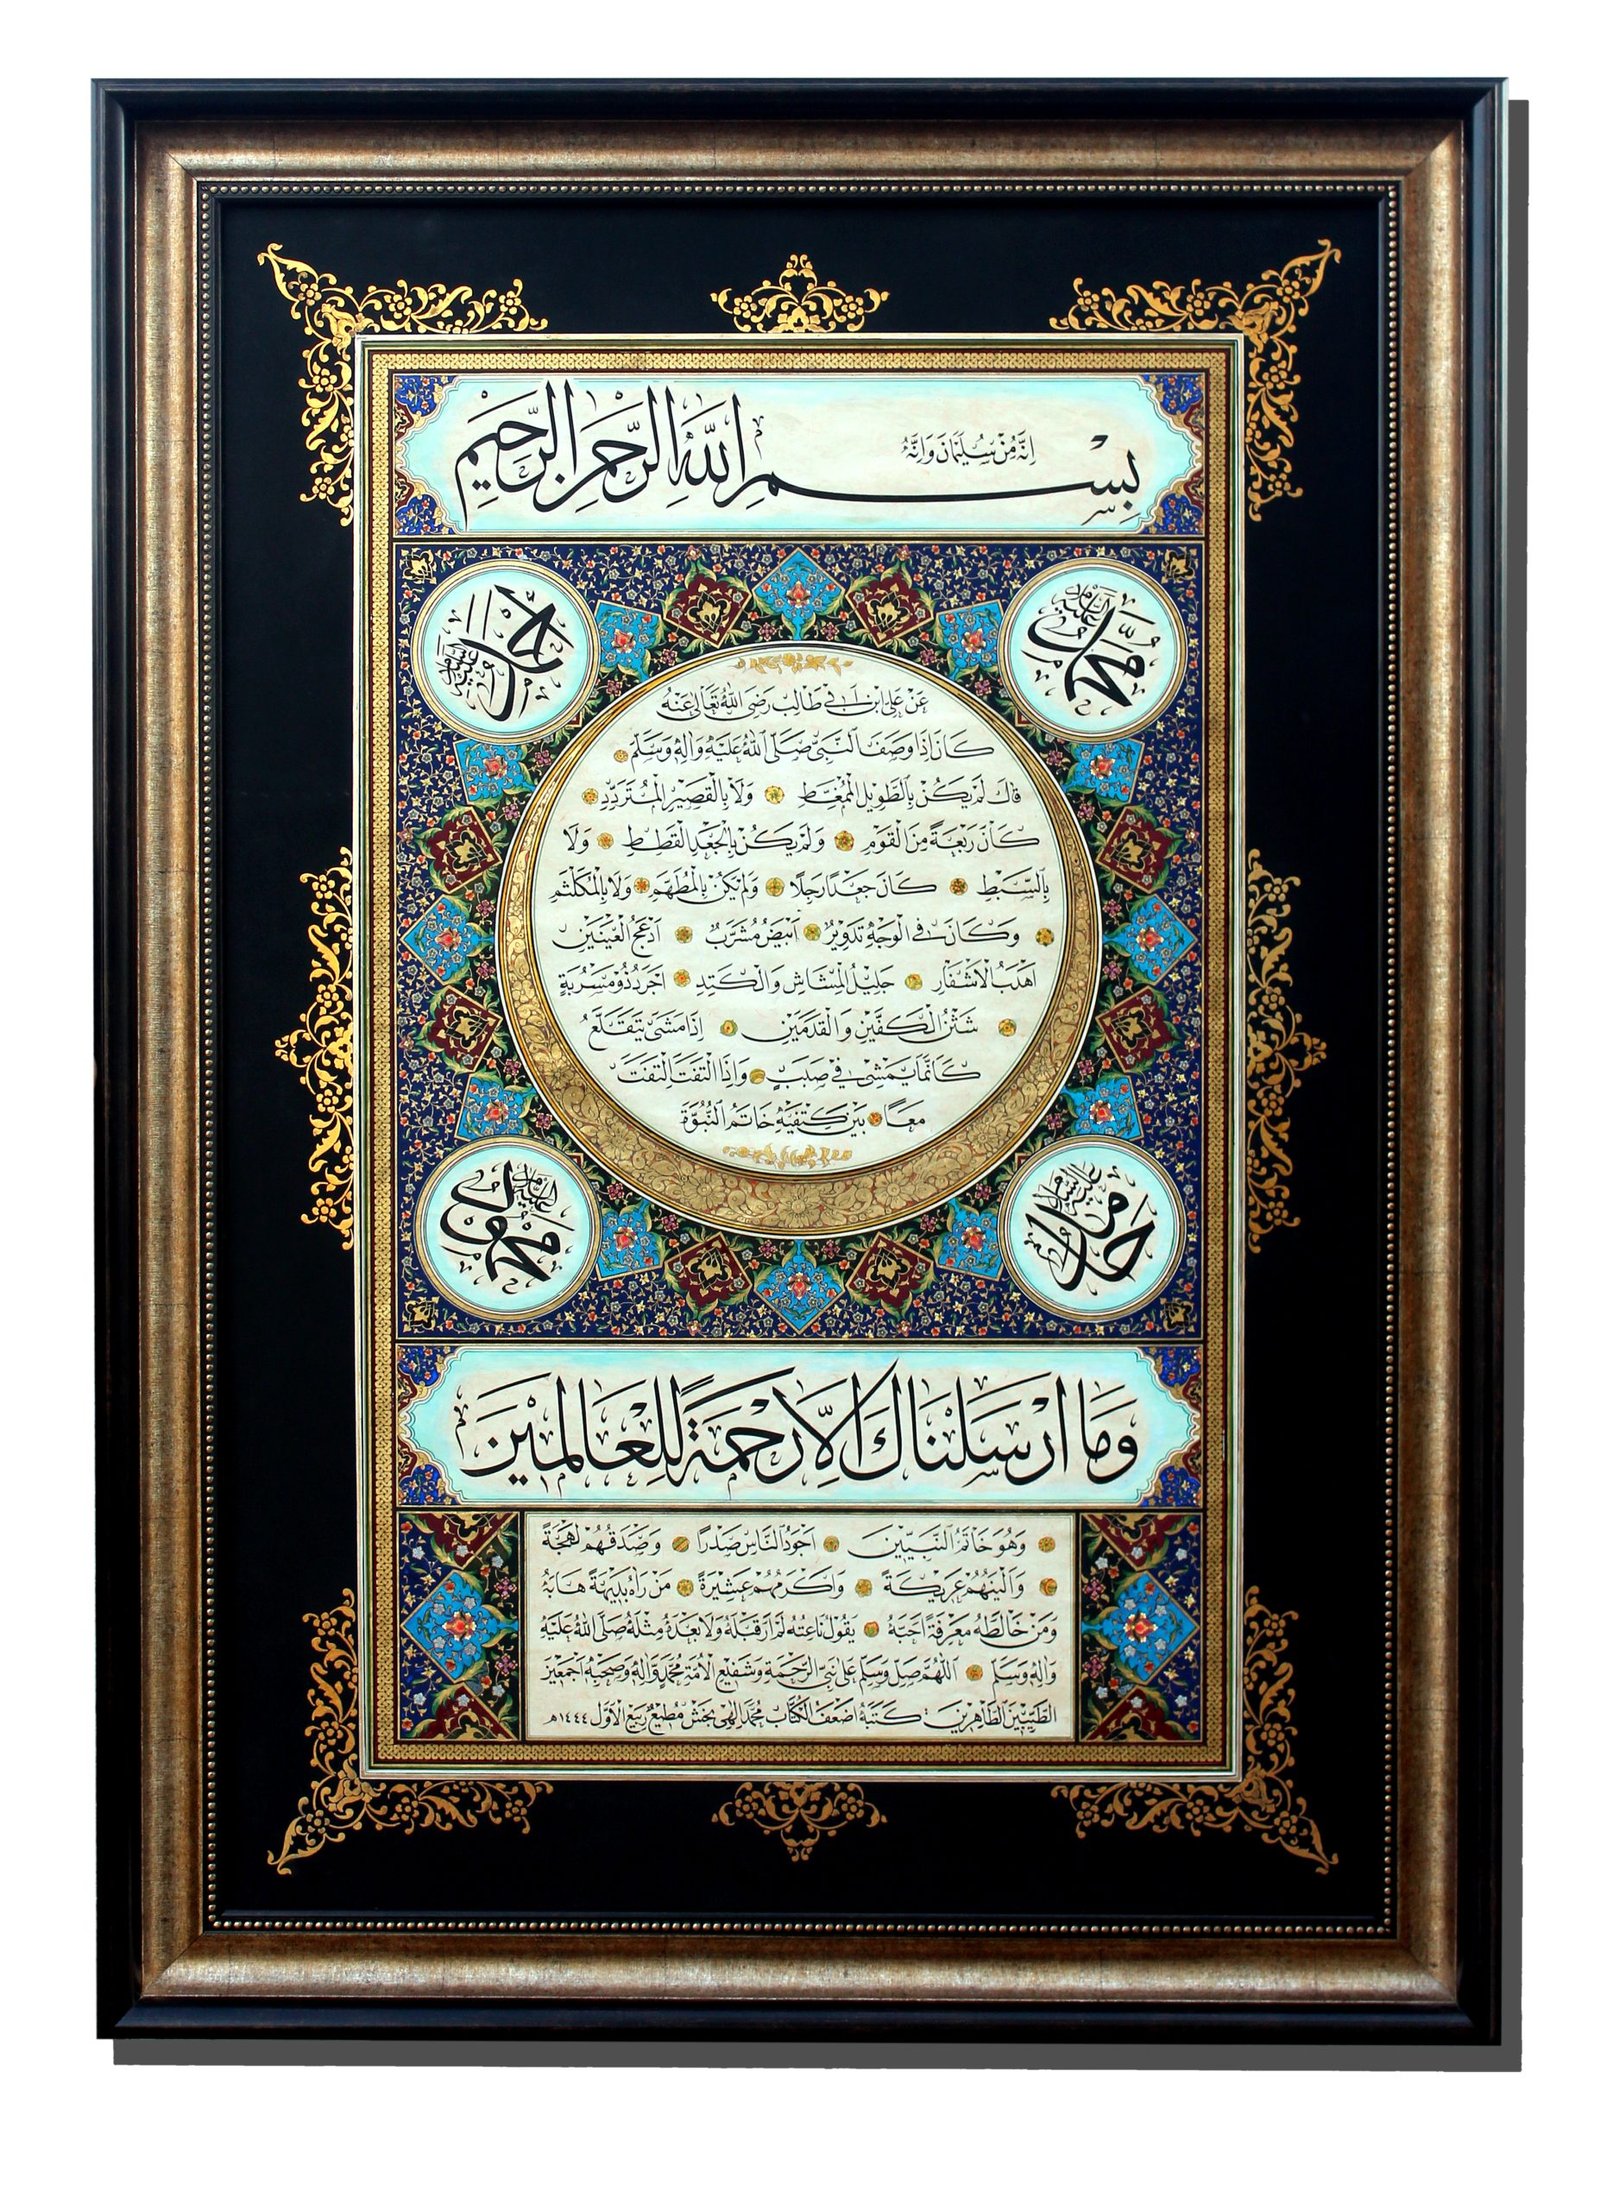 إنه من سليمان وإنه
بسم الله الرحمن الرحيم
محمد عليه السلام
احمد عليه السلام
عن علي ابن ابي طالب رضي الله تعالى عنه
كان اذا وصف النبي صلى الله عليه واله وسلم
قال لم يكن بالطويل الممغط ولا بالقصير المتردد
كان ربعة من القوم ولم يكن بالجعد القطط ولا
بالسبط كان جعدا رجلا ولم يكن بالمطهم ولا بالمكلثم
وكان في الوجه تدوير ابيض مشرب ادعج العينين
اهدب الاشفار جليل المشاش والكتد اجرد ذو مسربة
شثن الكفين والقدمين اذا مشى يتقلع
كانما يمشي في صبب واذا التفت التفت
معا بين كتفيه خاتم النبوة
حامد عليه السلام
محمود عليه السلام
وما ارسلناك الا رحمة للعالمين
وهو خاتم النبيين اجود الناس صدرا وصدقهم لهجة
والينهم عريكة واكرمهم عشيرة من راه بديهة هابه
ومن خالطه معرفة احبه يقول ناعته لم ار قبله ولا بعده مثله صلى الله عليه
واله وسلم اللهم صل وسلم على نبي الرحمة وشفيع الامة محمد واله وصحبه اجمعين
الطيبين الطاهرين كتبه اضعف الكتاب محمد الهي بخش مطيع ربيع الاول ١٤٤٤ه